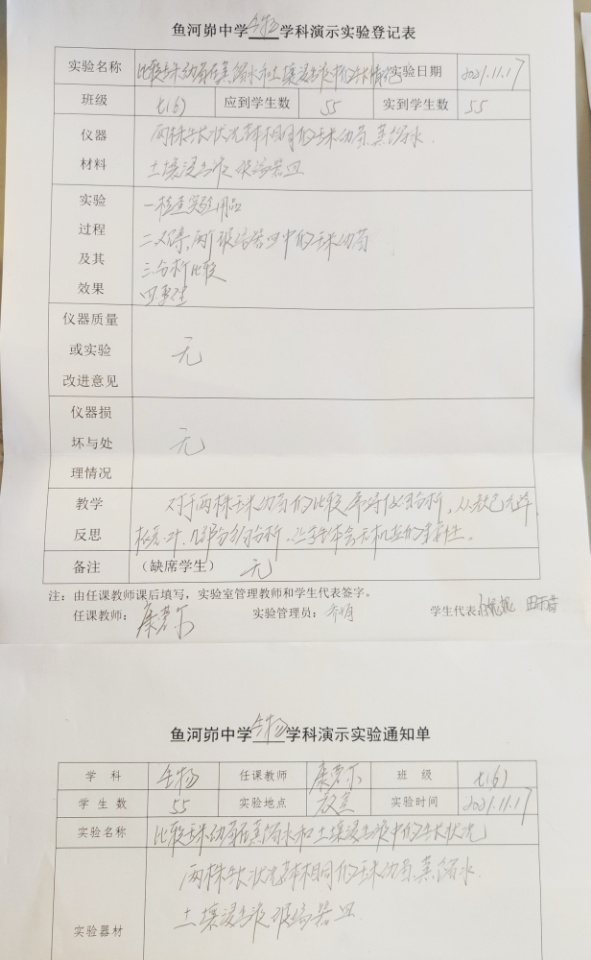 鱼河峁中学生物学科演示实验登记表
实验名称 比较玉米幼苗在蒸馏水和土壤浸出液中的生长情况 实验日期 2021.11.17
班级 七(6) 应到学生数 55 实到学生数 55
仪器 两株生长状况基本相同的玉米幼苗、蒸馏水、
材料 土壤浸出液 玻璃器皿
实验 一、检查实验用品
过程 二、观察两个玻璃器皿中的玉米幼苗
及其 三、分析比较
效果 四、整理
仪器质量
或实验 无
改进意见
仪器损
坏与处 无
理情况
教学 对于两株玉米幼苗的比较 分析,从
反思 叶、几部分 分析,让学生体会无机盐的重要性。
备注 (缺席学生) 无
注:由任课教师课后填写,实验室管理教师和学生代表签字。
任课教师: 实验管理员: 学生代表: 田雨
鱼河峁中学生物学科演示实验通知单
学 科 生物 任课教师 班 级 七(6)
学 生 数 55 实验地点 教室 实验时间 2021.11.17
实验名称 比较玉米幼苗在蒸馏水和土壤浸出液中的生长状况
两株生长状况基本相同的玉米幼苗、蒸馏水、
实验器材 土壤浸出液 玻璃器皿